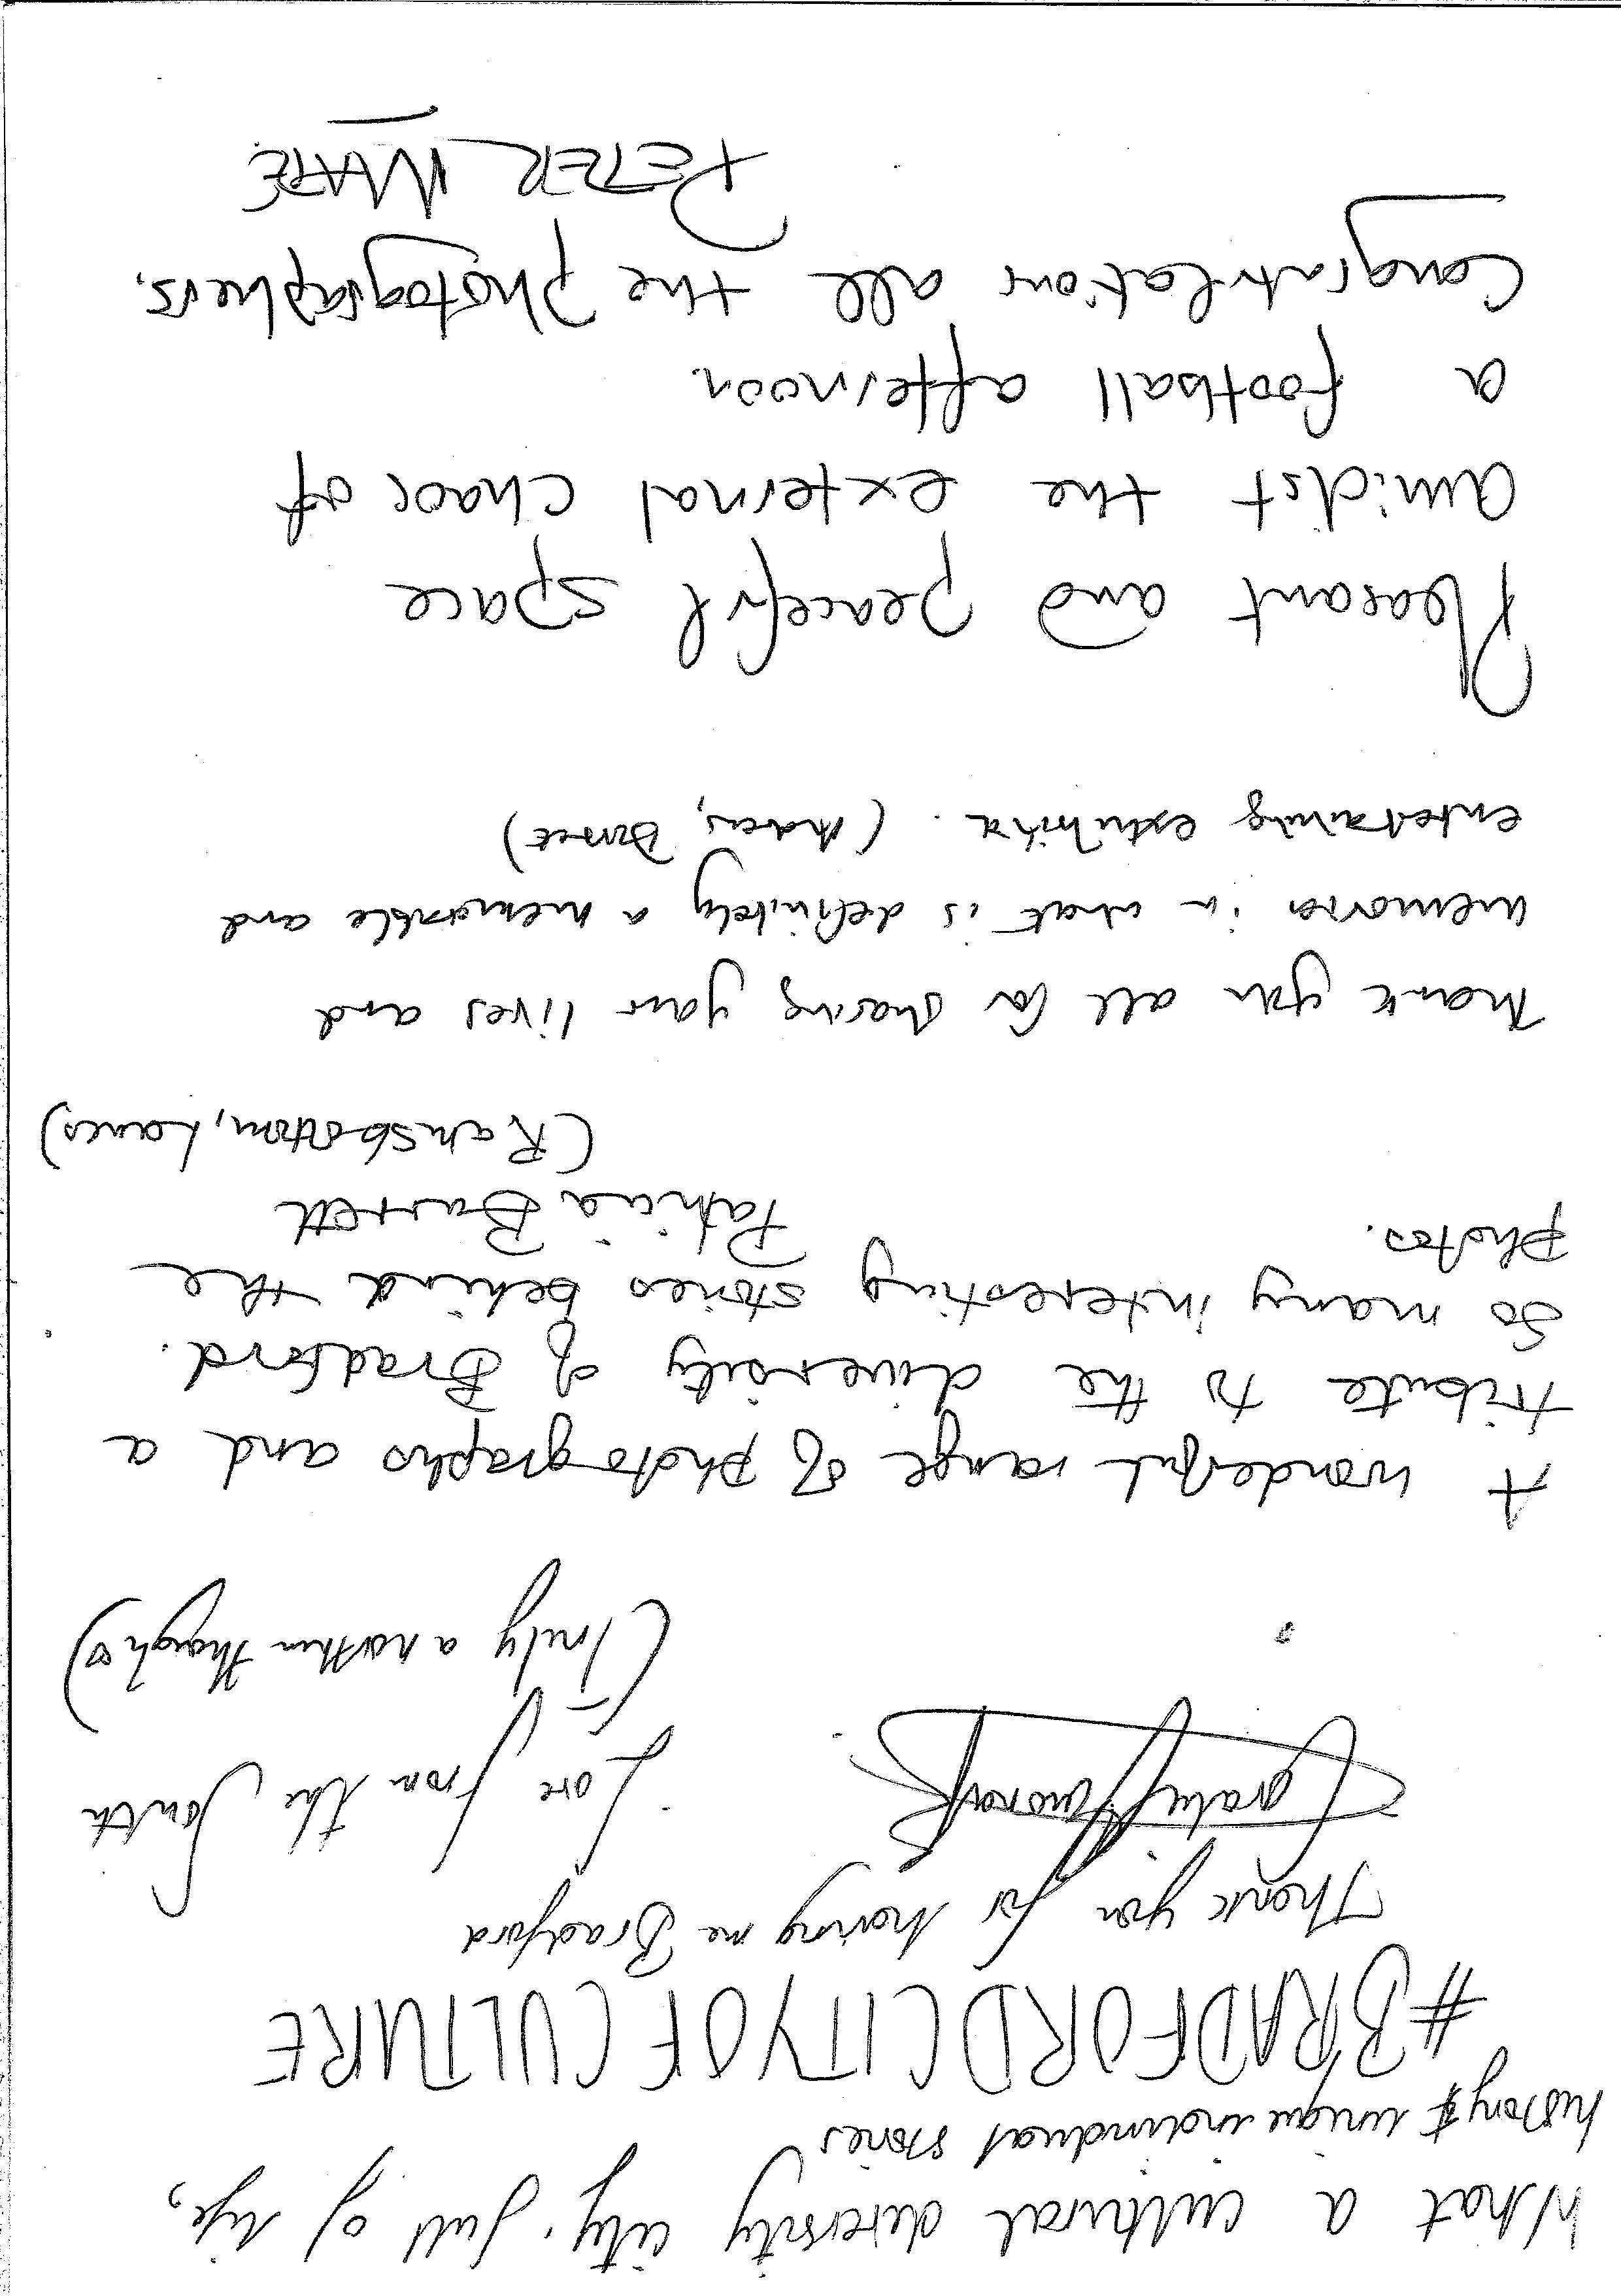 What a cultural diversity city, full of life,
history & unique individual stories
#BRADFORDCITYOFCULTURE
Thank you for having me Bradford
Love from the South
(Truly a northen though ♡)
A wonderful range of photographs and a
tribute to the diversity of Bradford.
So many interesting stories behind the
photos.
Patricia Burrell
(Ramsbottom, Lancs)
Thank you all for sharing your lives and
memories in what is definitely a memorable and
entertaining exhibition. (Dorset)
Pleasant and peaceful space
amidst the external chaos of
a football afternoon.
Congratulations all the photographers.
PETER WARE